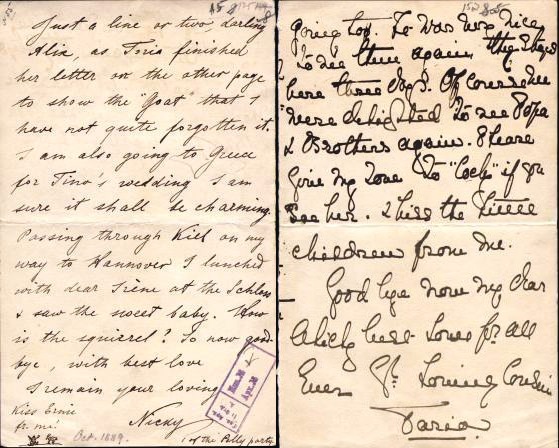 Just a line or two, darling
Alix, as Toria finished
her letter on the other page
to show the "Goat" that I
have not quite forgotten it.
I am also going to Greece
for Tino's wedding I am
sure it shall be charming.
Passing through Kiel on my
way to Hannover I lunched
with dear Irène at the Schloss
& saw the sweet baby. How
is the squirrel? So now good-
bye, with best love
I remain your loving
Nicky
Kiss Ernie
fr. me!
Oct. 1889.
of the Pelly party
going too. It was very nice
to see them again, they stayed
here three days. Of course we
were delighted to see Papa
& Brothers again. Please
give my love to "
if you
see her. & kiss the little
children from me.
Good bye now my dear
Alicky best love for all
Ever yr loving Cousin
Toria